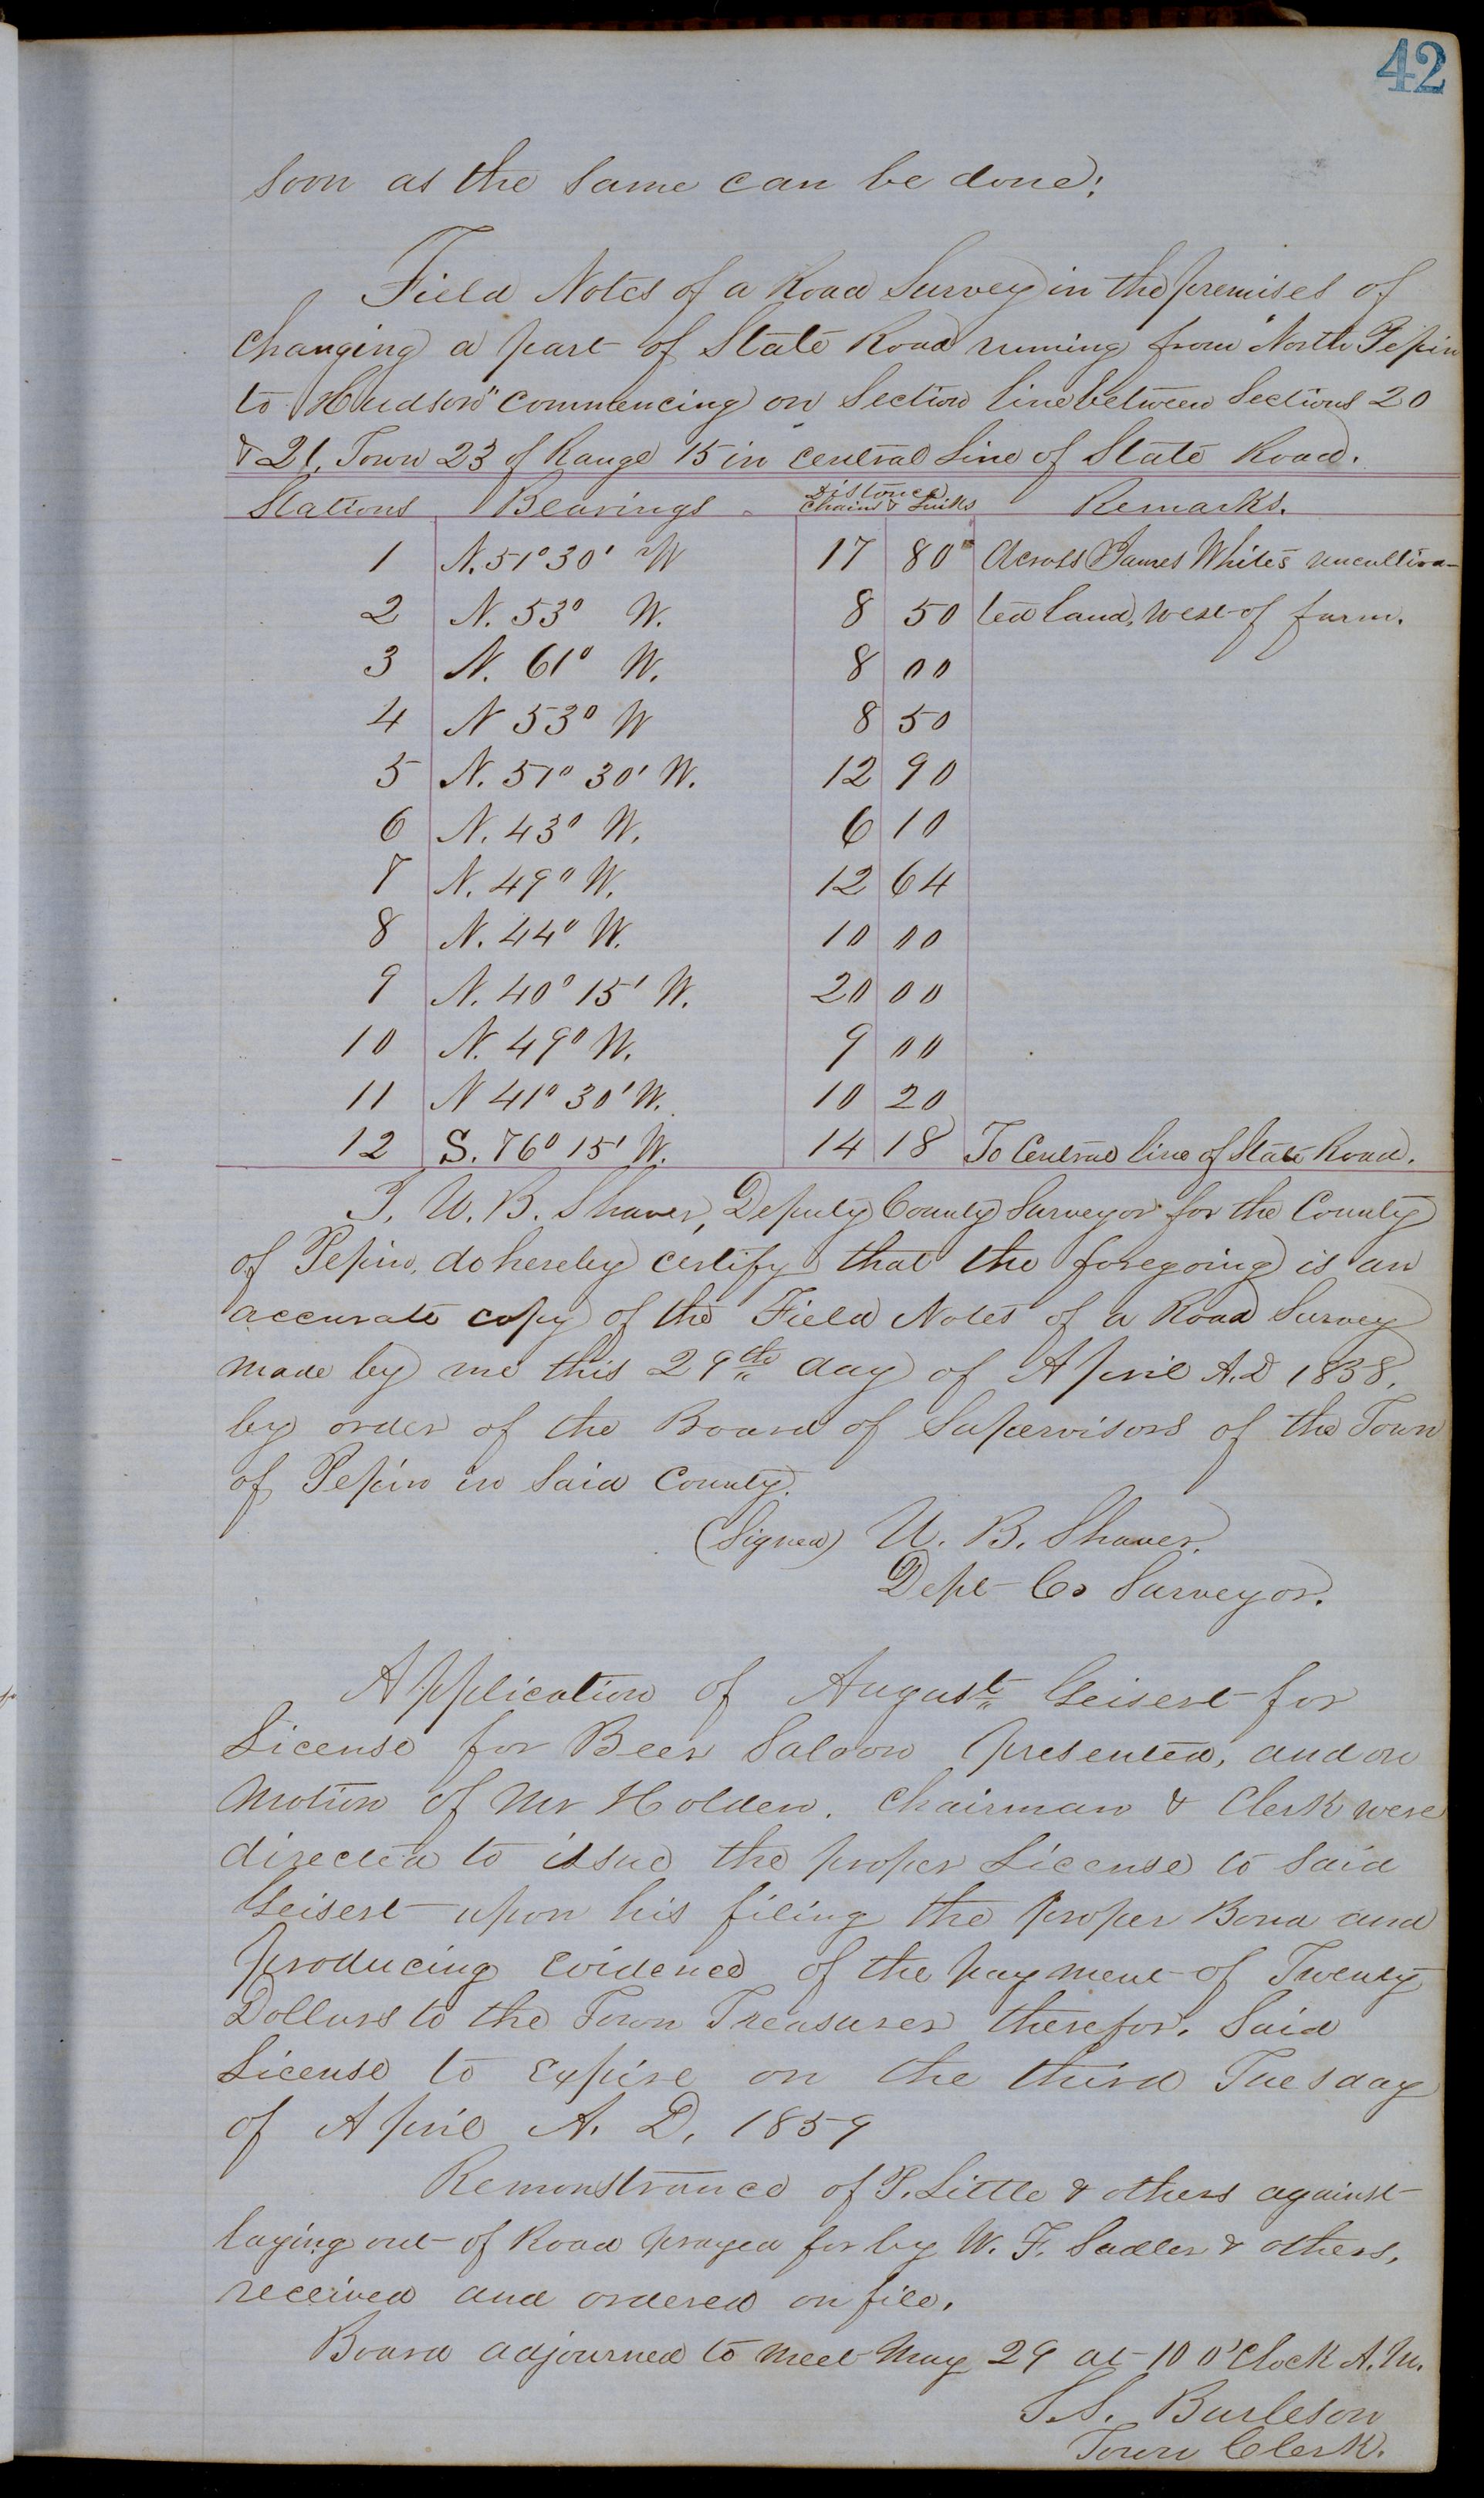 42
soon as the same can be done:
Field Notes of a Road Survey in the premises of
changing a part of State Road runing from "North Pepin
to Hudson" commencing on Section line between Sections 20
& 21, Town 23 of Range 15 in central line of State Road.
Stations Bearings Distance Chains & Links Remarks.
1 N. 51° 30' W 17 80 Across James White's uncultiva-
2 N. 53° W. 8 50 ted land, west of farm.
3 N. 61° W. 8 00
4 N 53° W 8 50
5 N. 51° 30' W. 12 90
6 N. 43° W. 6 10
7 N. 49° W. 12 64
8 N. 44° W. 10 00
9 N. 40° 15' W. 20 00
10 N. 49° W. 9 00
11 N 41° 30' W. 10 20
12 S. 76° 15' W. 14 18 To Central line of State Road.
I, U. B. Shaver, Deputy County Surveyor for the County
of Pepin, do hereby certify that the foregoing is an
accurate copy of the Field Notes of a Road Survey
made by me this 29th day of April A.D 1858,
by order of the Board of Supervisors of the Town
of Pepin in said County.
(Signed) U. B. Shaver.
Dept Co Surveyor.
Application of August Geisert for
License for Beer Saloon presented, and on
motion of Mr Holden. Chairman & Clerk were
directed to issue the proper License to said
Geisert upon his filing the proper Bond and
producing evidence of the payment of Twenty
Dollars to the Town Treasurer therefor. Said
License to expire on the third Tuesday
of April A. D. 1859
Remonstrance of P. Little & others against
laying out of Road prayed for by W. F. Sadler & others,
received and ordered on file.
Board adjourned to meet May 29 at 10 O'Clock A.M.
S.S. Burleson
Town Clerk.